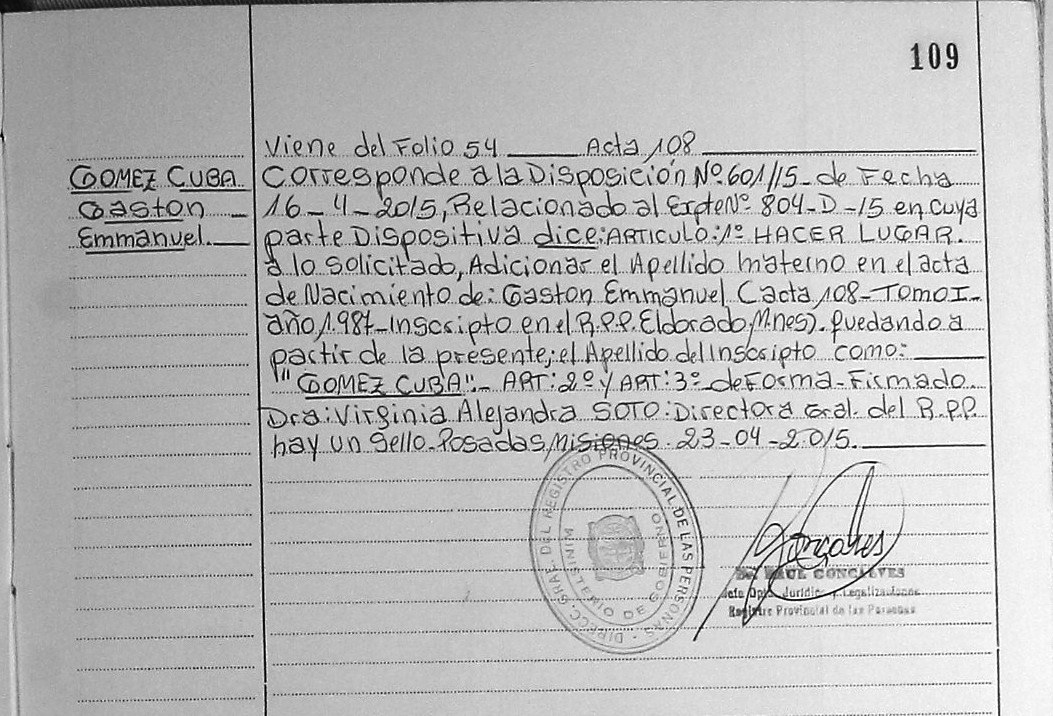 109
GOMEZ CUBA
Gaston
Emmanuel.
Viene del Folio 54 Acta 108
Corresponde a la Disposición Nº 601/15-de Fecha
16-4-2015, Relacionado al Expte Nº 804-D-15 en cuya
parte Dispositiva dice: ARTICULO: 1º HACER LUGAR.
a lo solicitado, Adicionar el Apellido materno en el acta
de Nacimiento de: Gaston Emmanuel (acta 108-Tomo I-
año 1.987-Inscripto en el R.P.P. Eldorado, Mnes). quedando a
partir de la presente; el Apellido del Inscripto como:
"GOMEZ CUBA"- ART: 2º y ART: 3º-de Forma-Firmado
Dra: Virginia Alejandra SOTO: Directora Gral. del R.P.P.
hay un sello-Posadas, Misiones. 23-04-2015.
DIRECC. GRAL. DEL REGISTRO PROVINCIAL DE LAS PERSONAS
MINISTERIO DE GOBIERNO
Gonçalves
RAUL GONCALVES
Jefe Dpto. Jurídico y Legalizaciones
Registro Provincial de las Personas